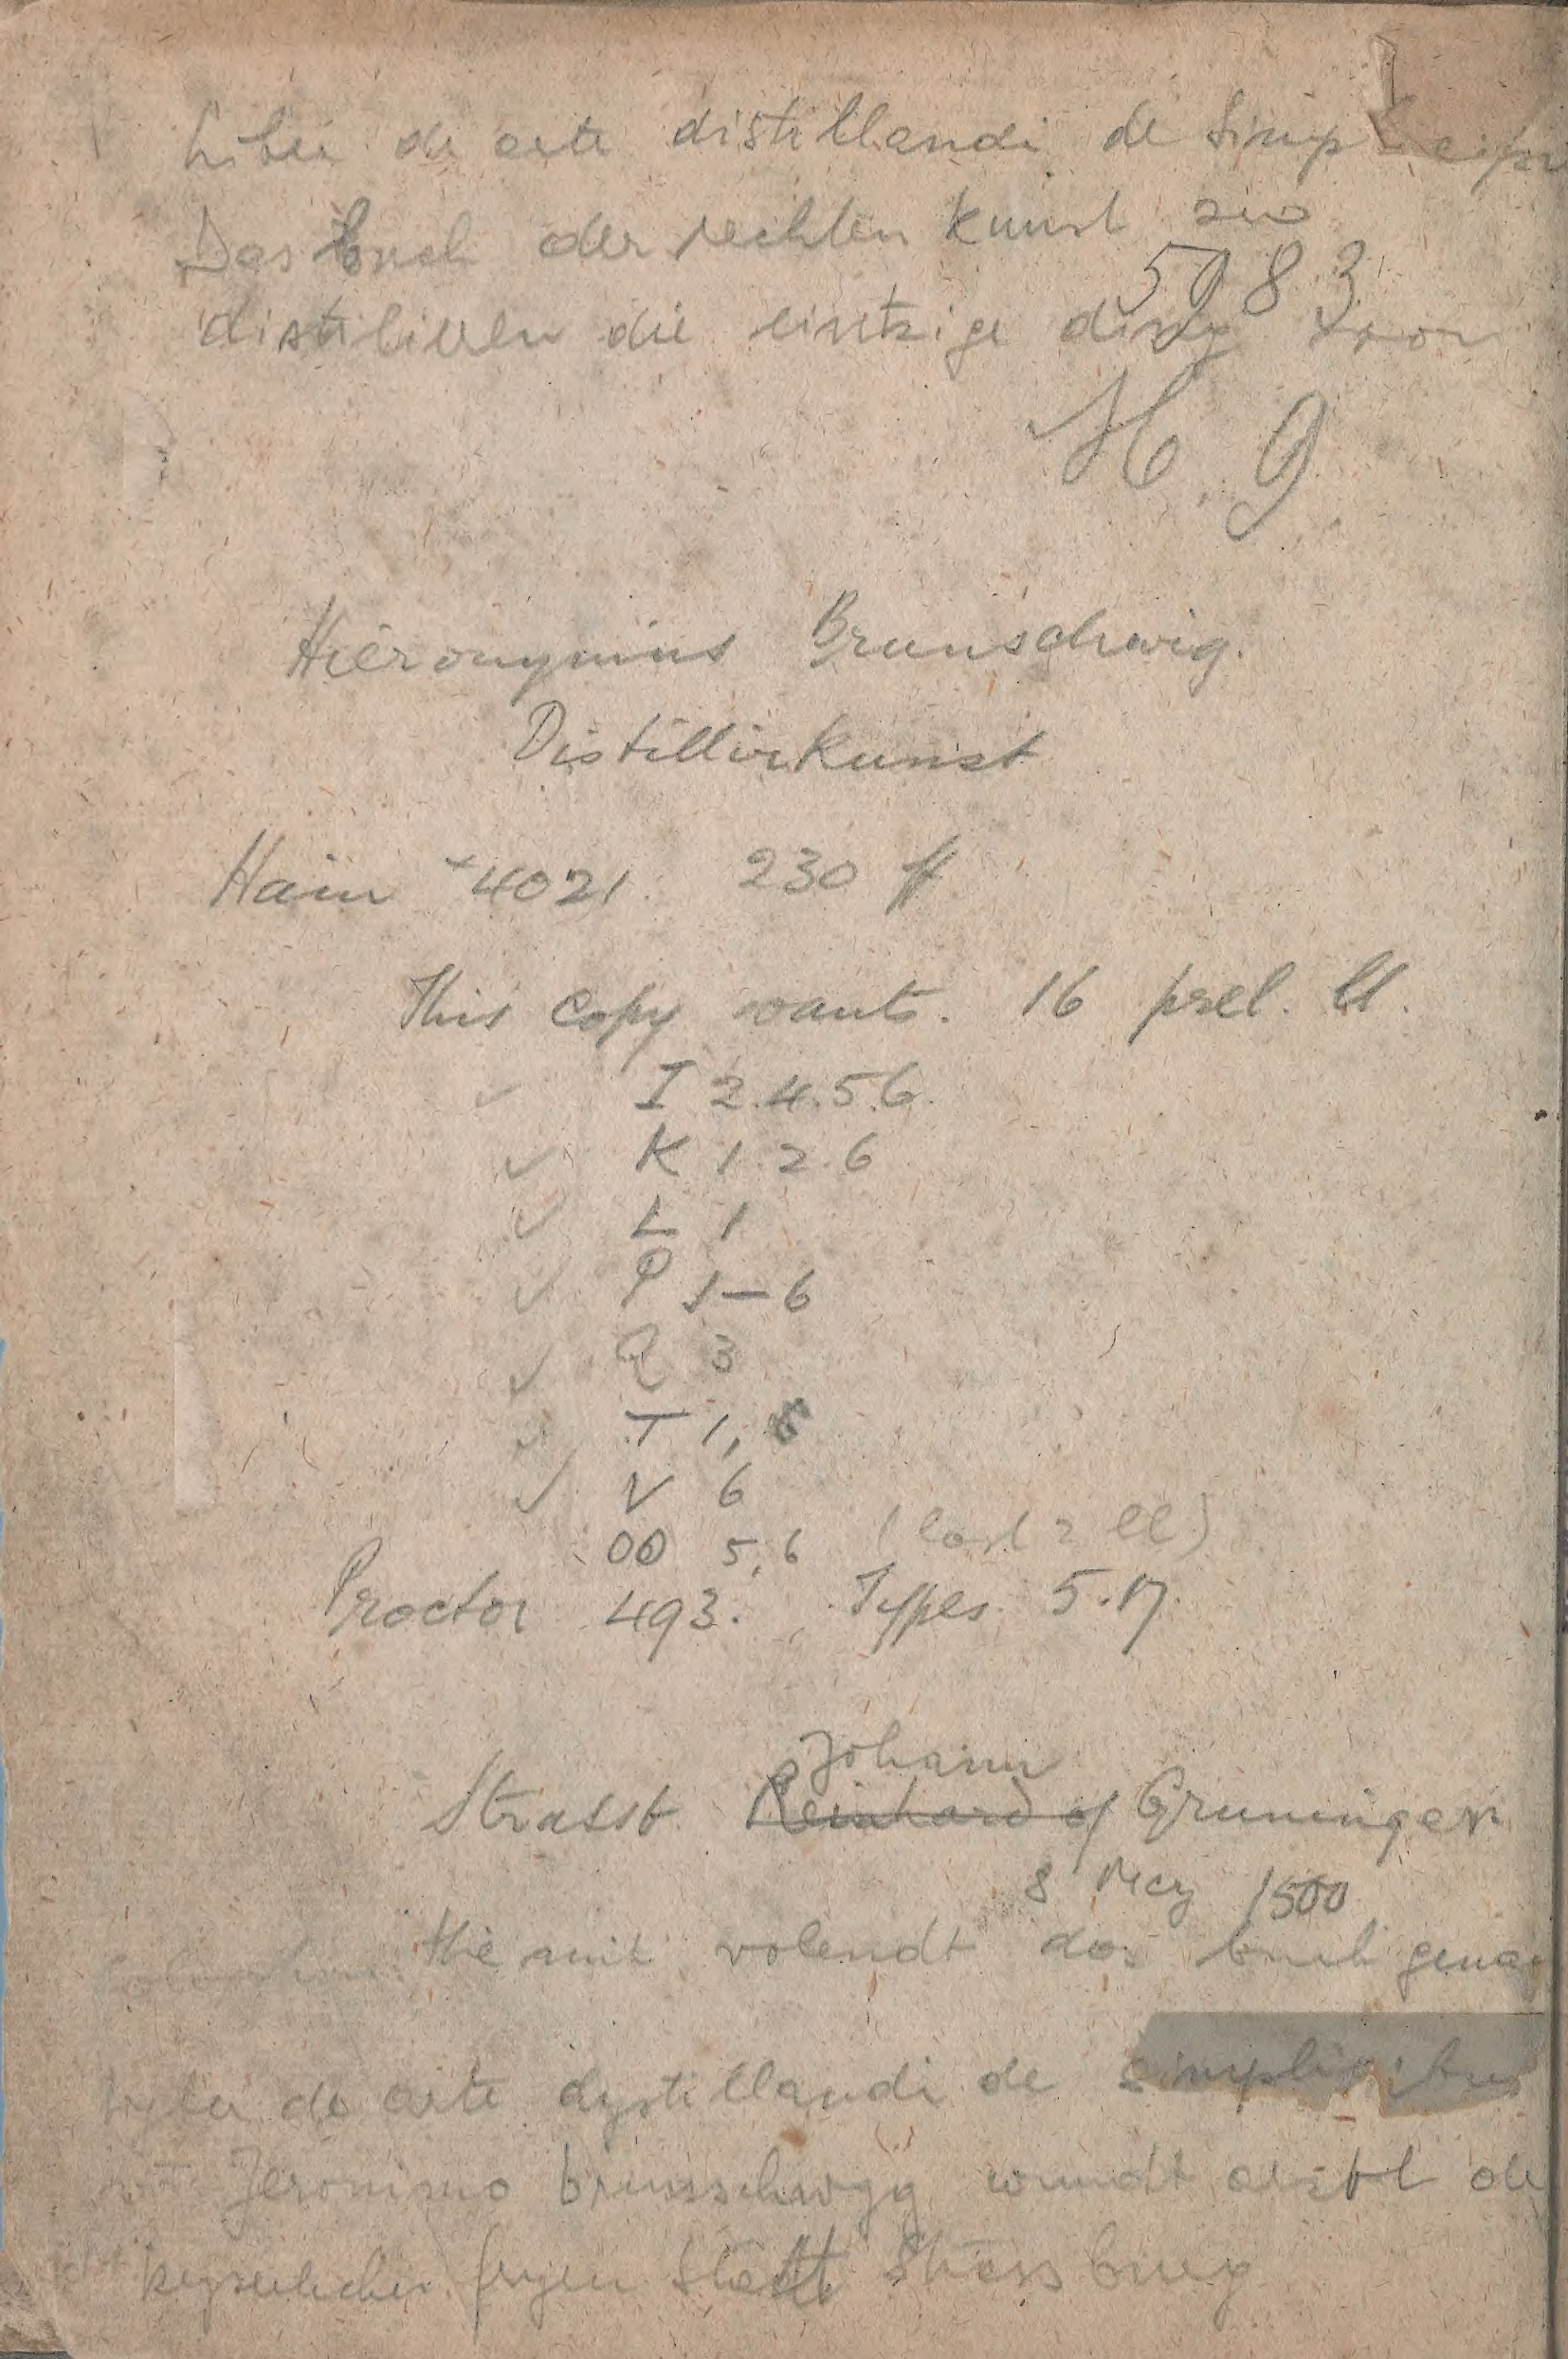 Liber de arte distillandi de Simp
Das buch der rechten kunst zu
5983
distilieren die eintzige ding von
H. 9
Hieronymus Brunschwig.
Distillirkunst
Hain *4021. 230 ff
This copy wants. 16 prel. ll.
✓ I 2.4.5.6.
✓ K 1.2.6
✓ L 1
✓ P 1—6
✓ Q 3
✓ T 1, 6
✓ V 6
OO 5,6 (last 2 ll)
Proctor 493. Types. 5.17.
Johann
Strassb. Reinhard of Gruninger
8 May 1500
Colophon. Hie mit volendt das buch genan
lyber de arte dystillandi de simplicibus
Jeronimo brunschwygg wundt artzt de
keyserlichen fryen statt Strassburg